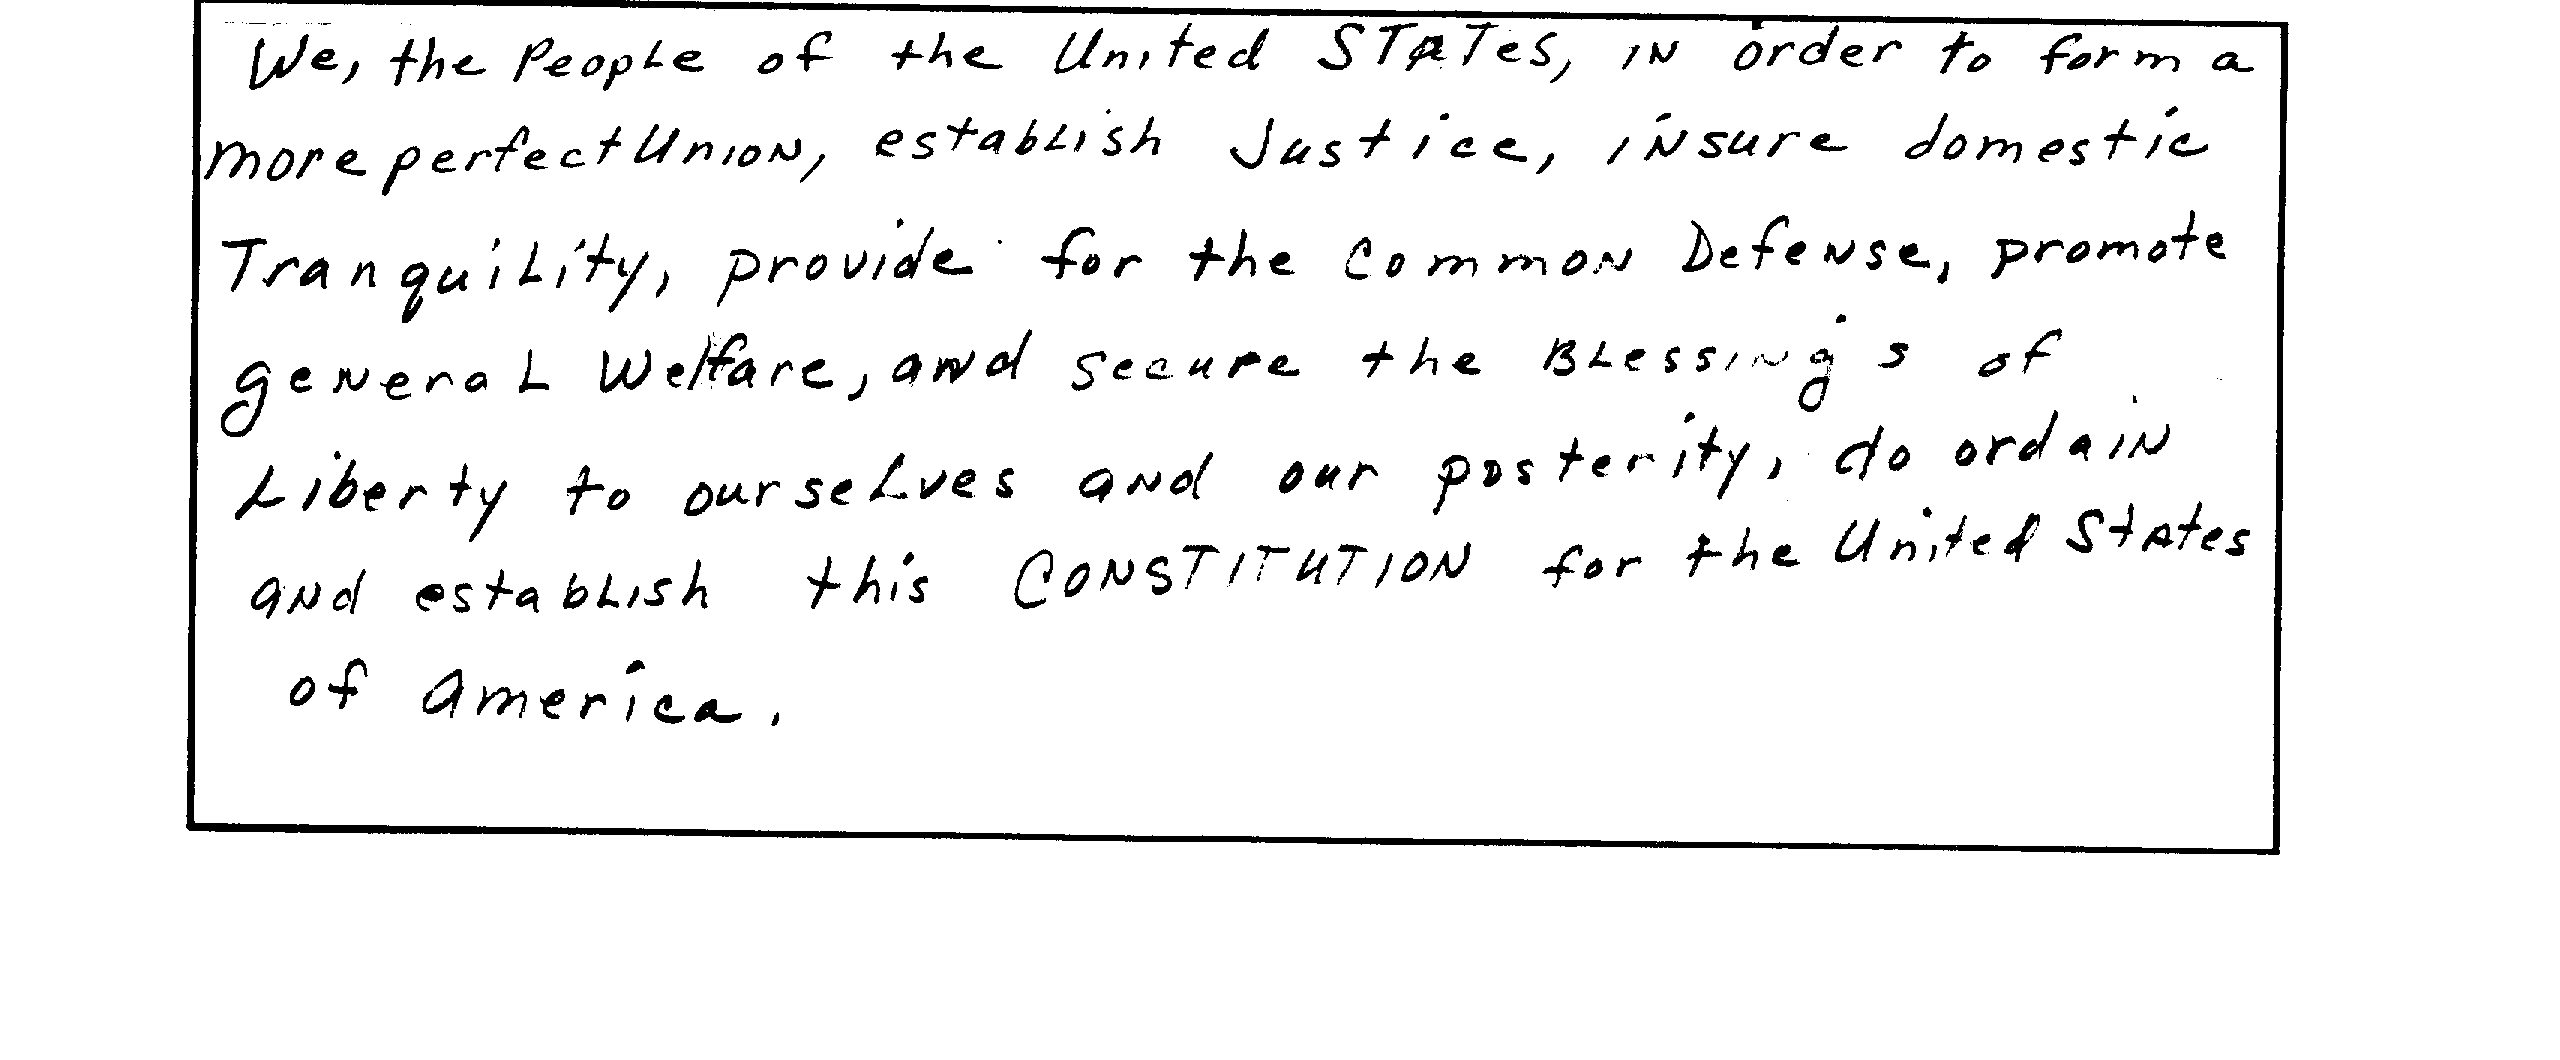 We, the People of the United States, in order to form a
more perfect Union, establish Justice, insure domestic
Tranquility, provide for the Common Defense, promote
general Welfare, and secure the Blessing's of
Liberty to ourselves and our posterity, do ordain
and establish this CONSTITUTION for the United States
of America.